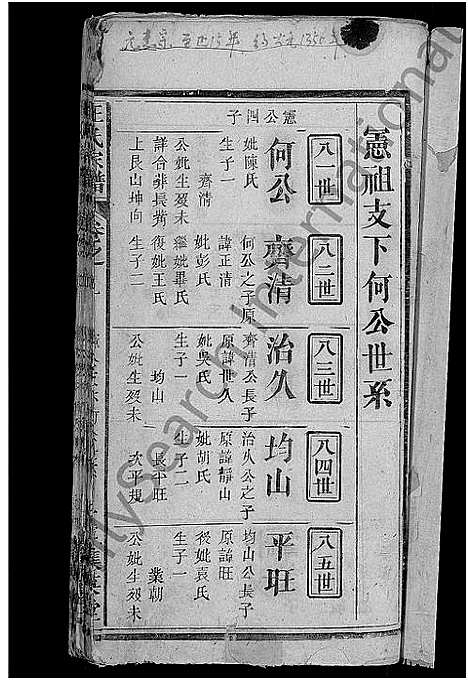 憲祖支下何公世系
八一世
憲公四子
何公
妣陳氏
生子一
齊清
公妣生歿未
詳合葬長㘭
上艮山坤向
八二世
齊清
何公之子原
諱正清
妣彭氏
繼妣畢氏
復妣王氏
生子二
八三世
治久
齊清公長子
原諱世久
妣吳氏
生子一
均山
公妣生歿未
八四世
均山
治久公之子
原諱靜山
妣胡氏
生子二
長平旺
次平規
八五世
平旺
均山公長子
原諱旺
妣袁氏
生子一
業朝
公妣生歿未
氏家譜
MySearch International